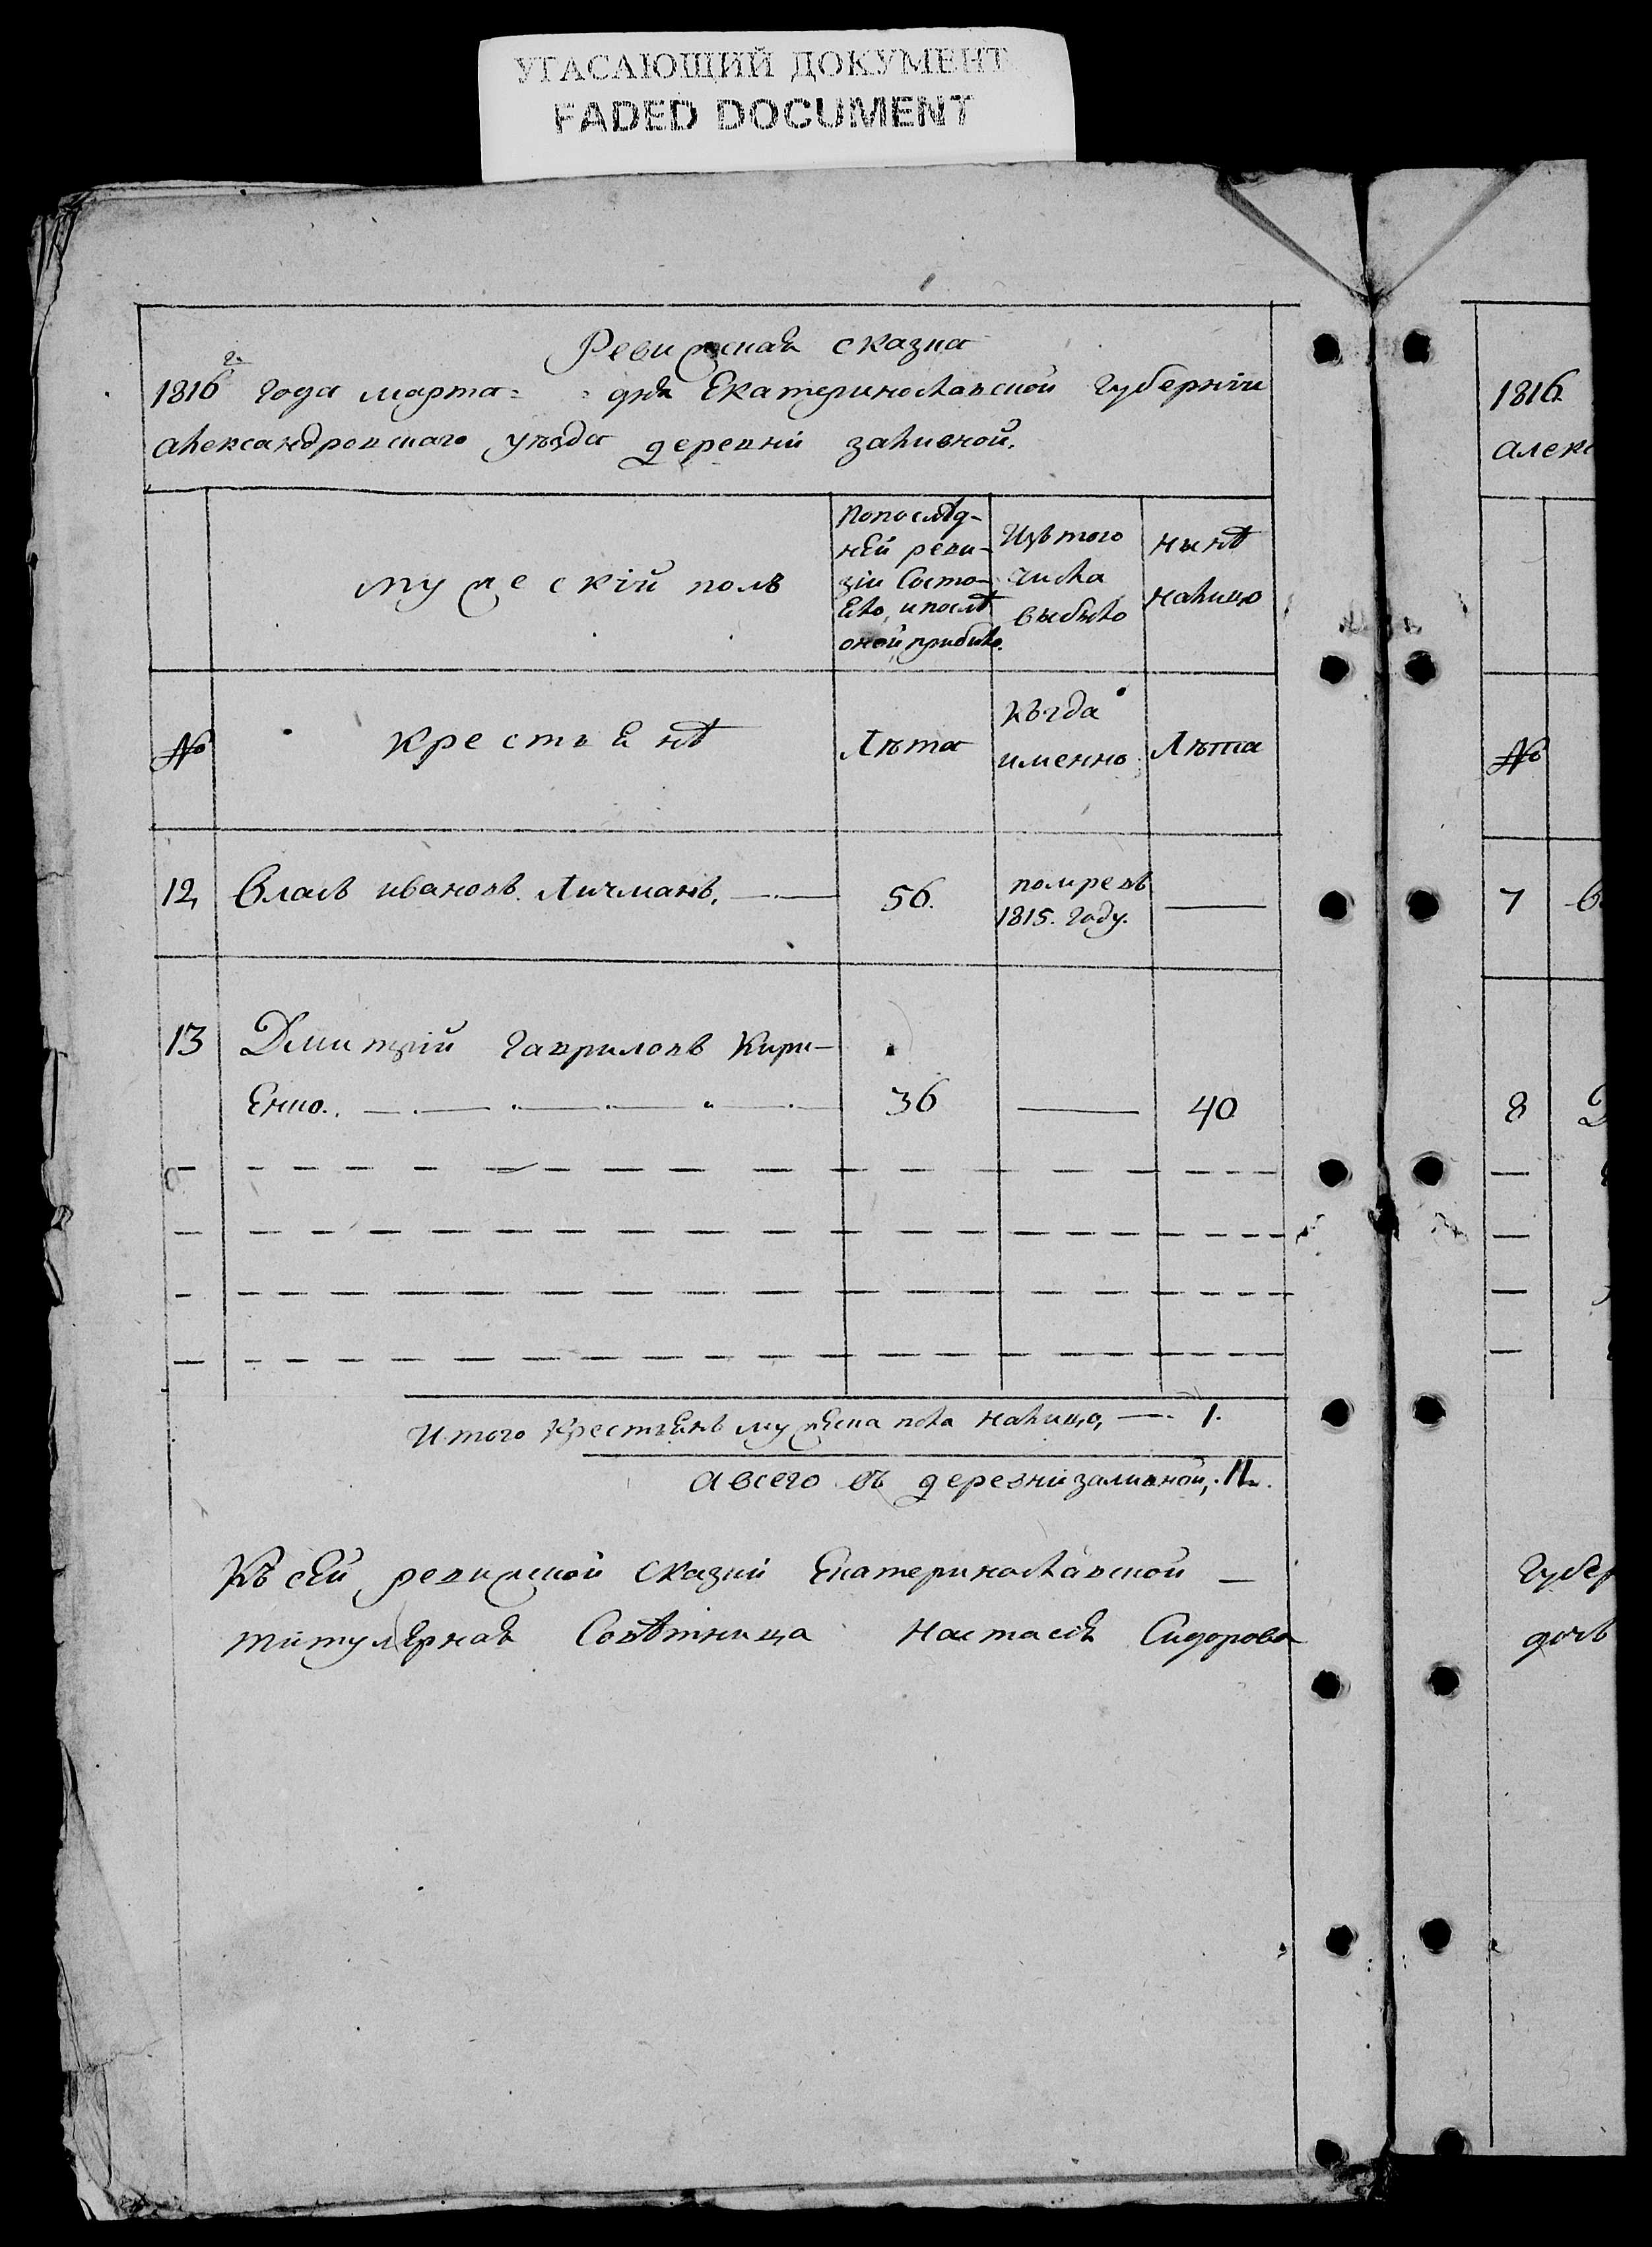 УГАСАЮЩИЙ ДОКУМЕНТ
FADED DOCUMENT
Ревижская сказка
1816го года марта = = дня Екатеринославской Губернии
александровскаго уезда деревни заливной.
мужескій полъ
Попослѣд-
ней реви-
зіи Состо-
Ело, и послѣ
оной прибыло.
Изъ того
числа
выбыло
нынѣ
налицо
№
крестьянѣ
Лѣта
Когда
именно
Лѣта
12,
Власъ ивановъ Личманъ.
56.
померъ въ
1815. году.
13
Дмитрій гавриловъ Кири-
Енко.
36
40
Итого крестьянъ мужеска пола налицо, 1.
а всего въ деревни заливной, 11.
Къ сей ревижской сказки Екатеринославской
титулярная Совѣтница Настася Сидорова
1816
алекс
№
7
8
Губер
дочь